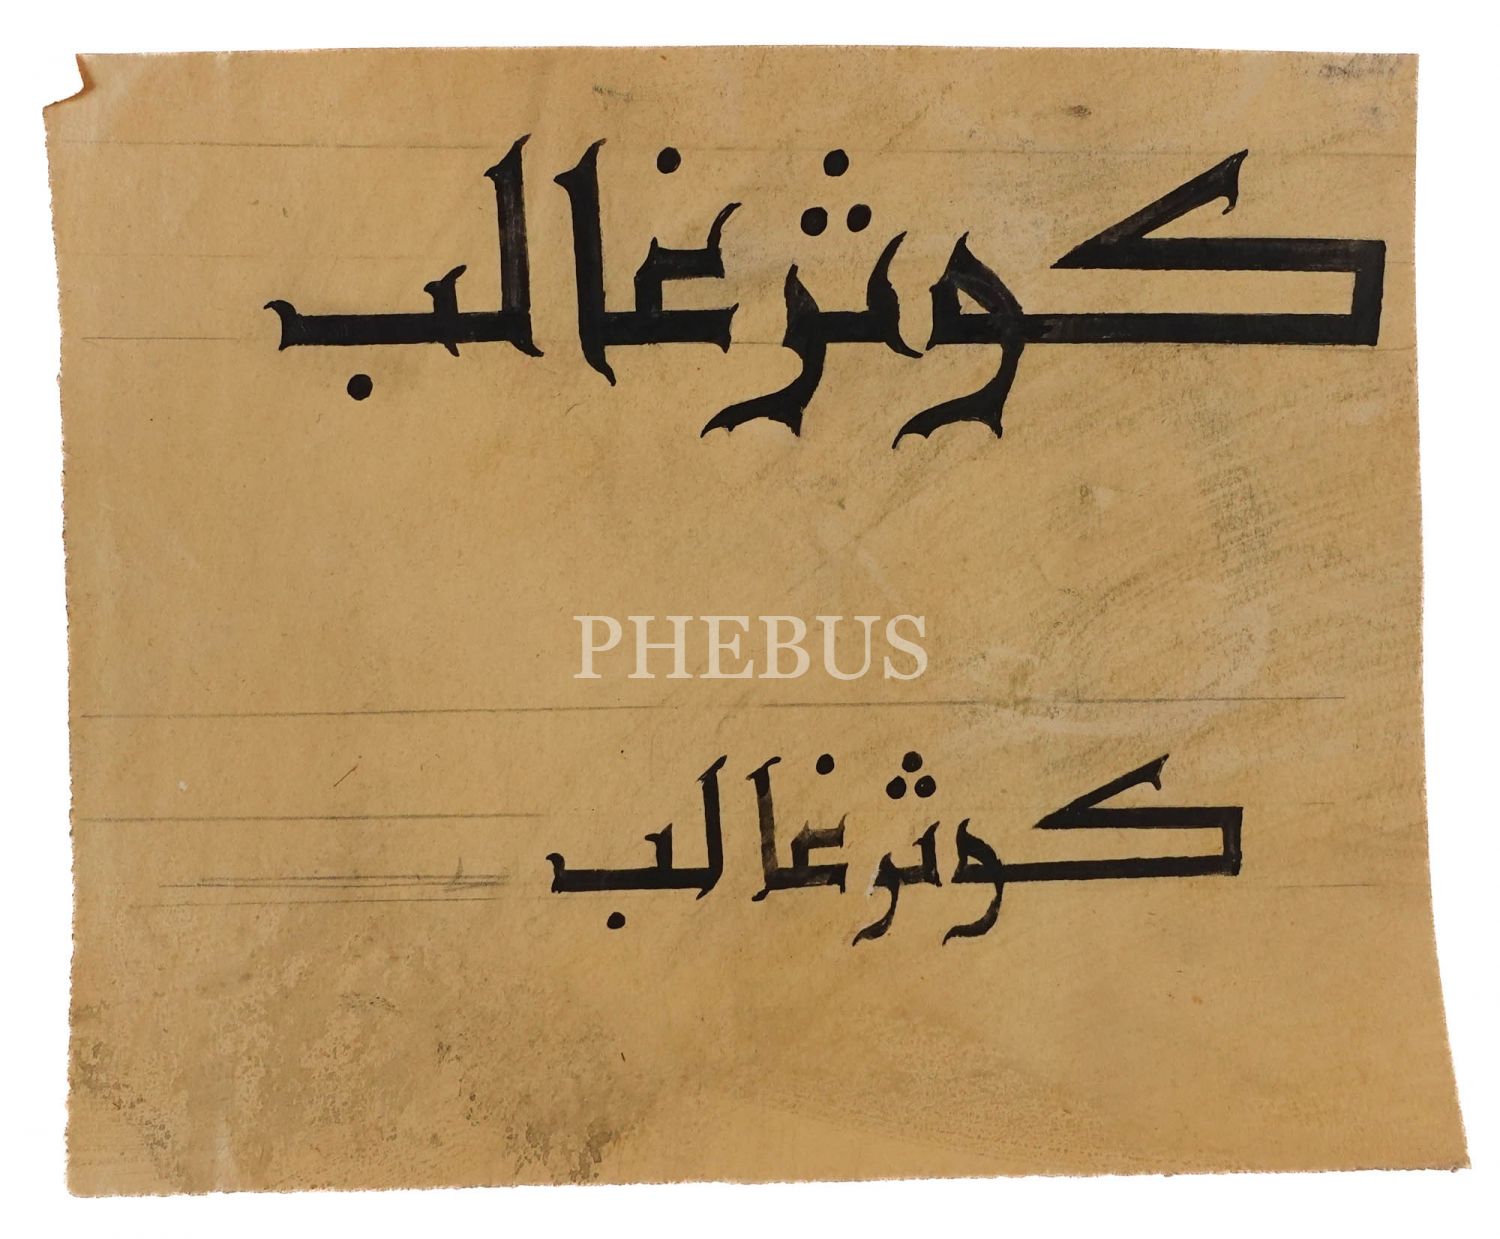 كوثر غالب
PHEBUS
كوثر غالب